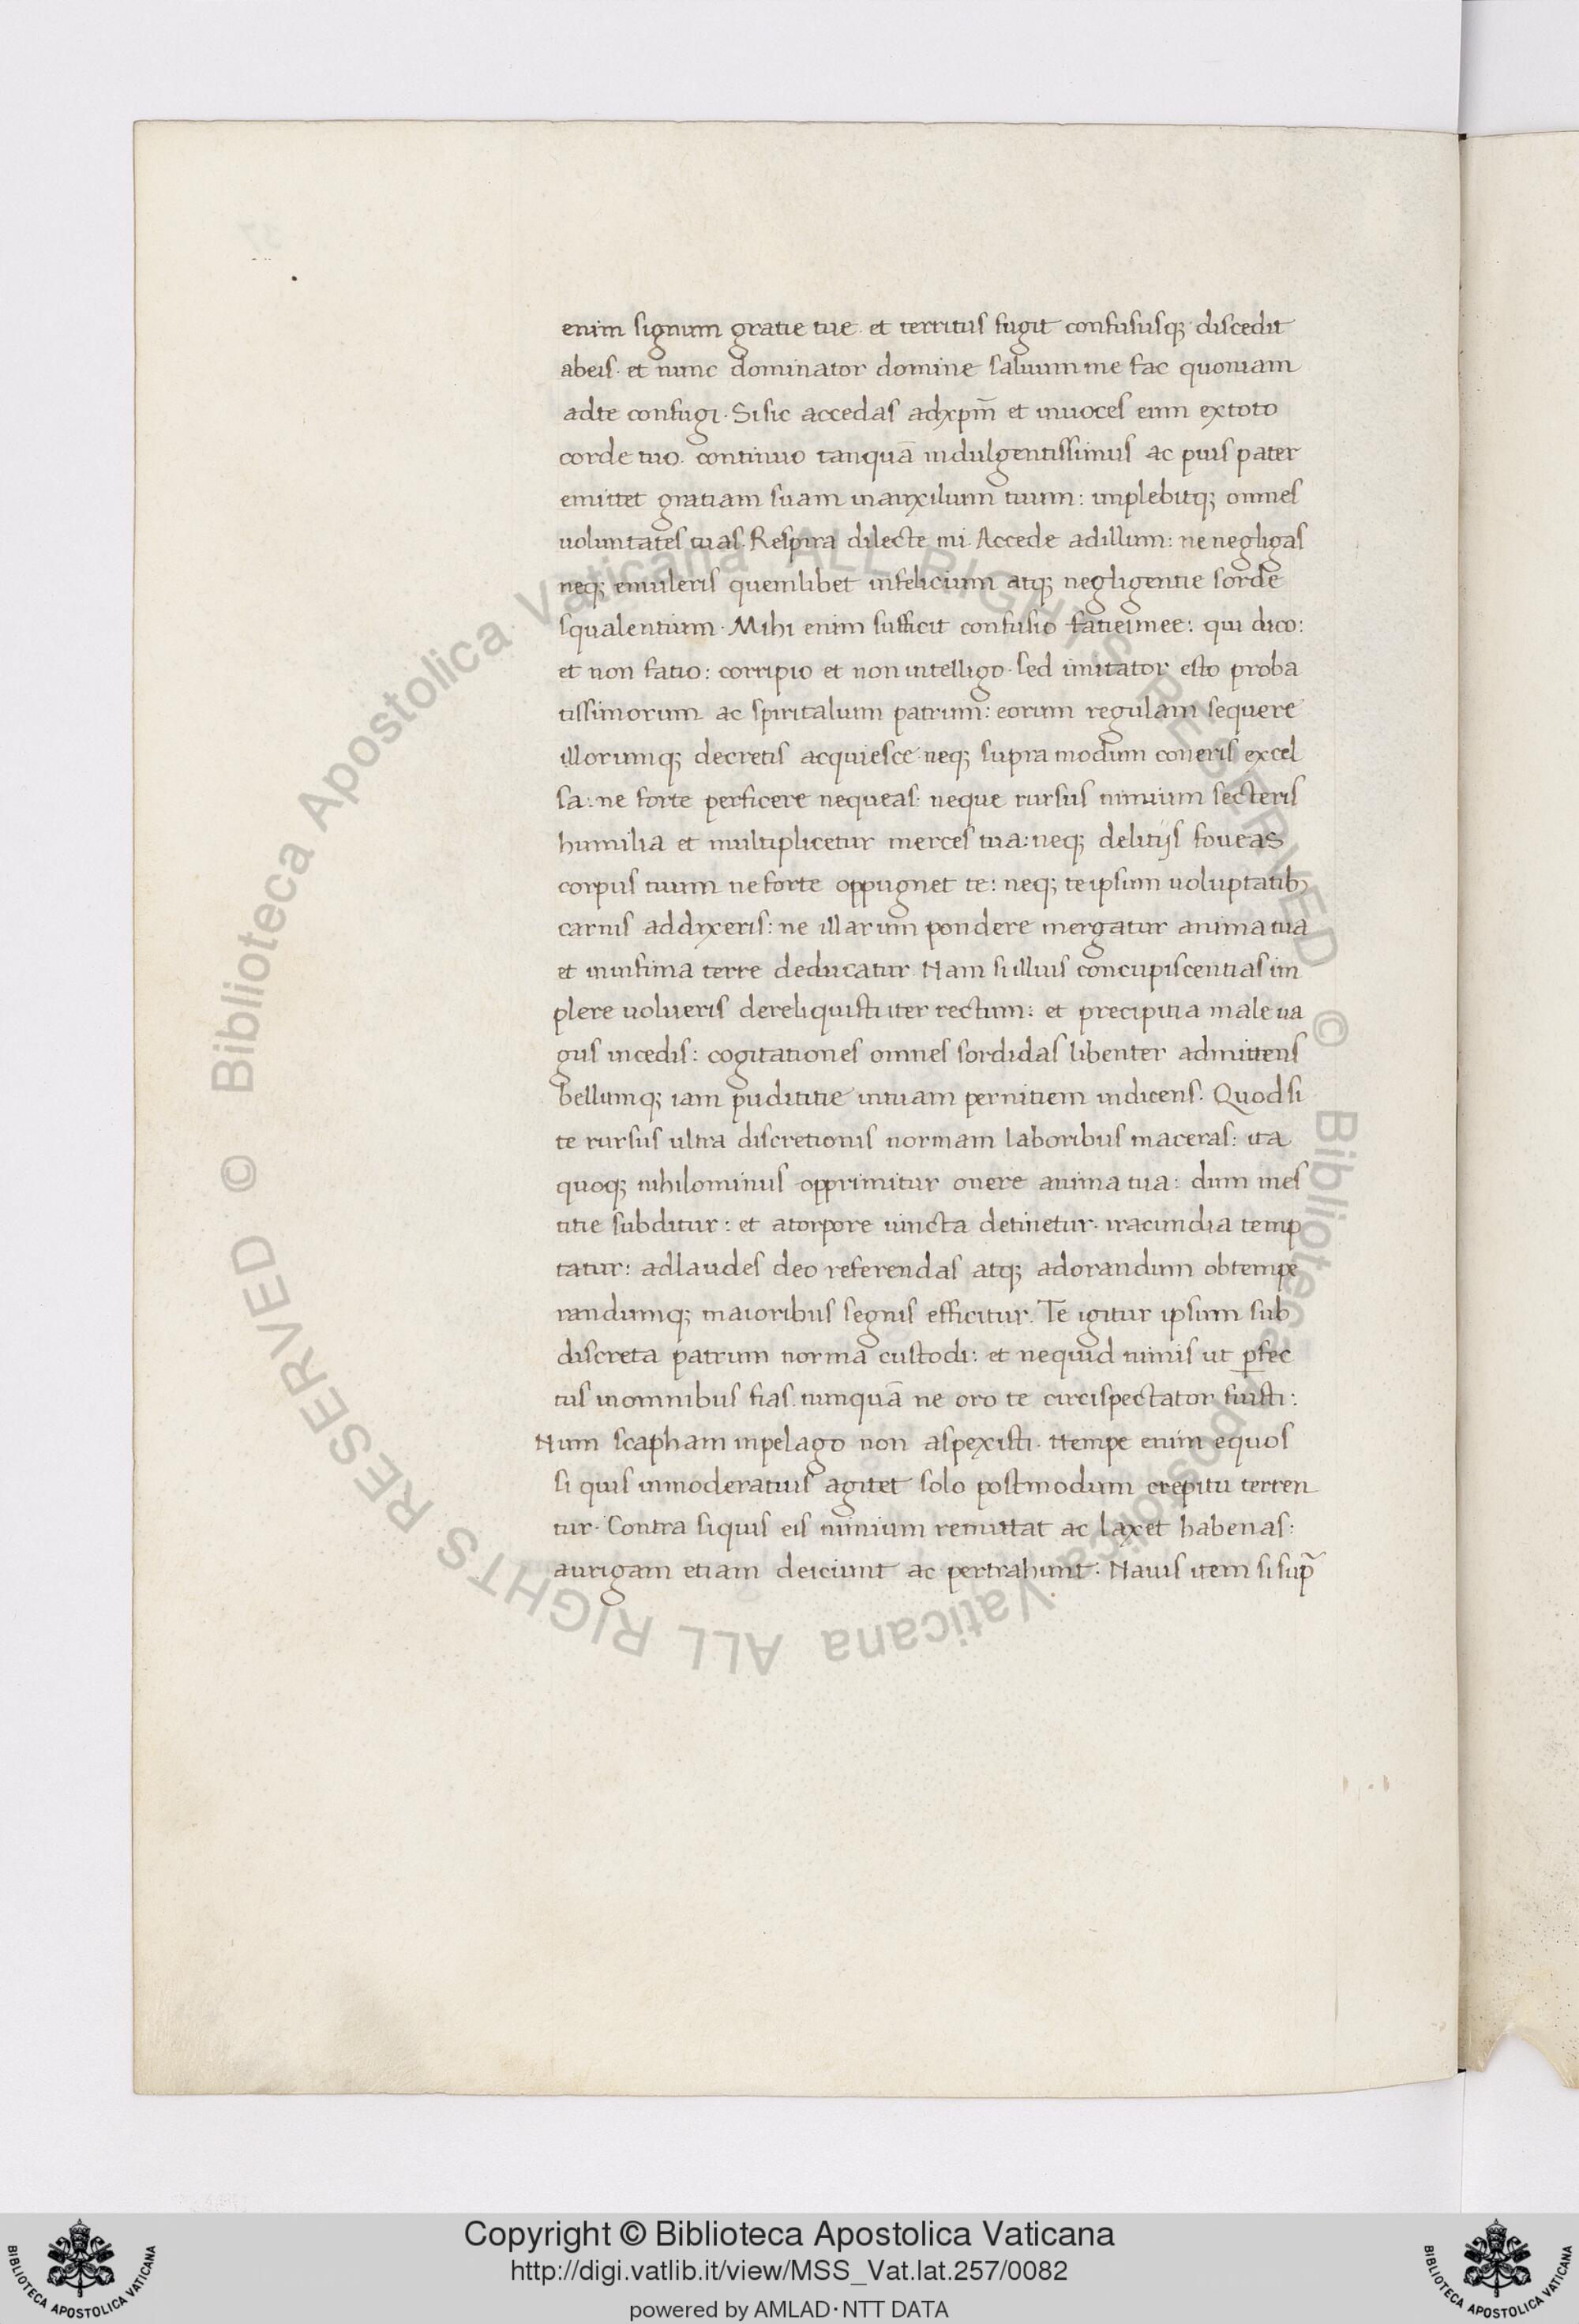 enim signum gratie tue. et territus fugit confususq; discedit
abeis. et nunc dominator domine saluum me fac quoniam
adte confugi. Si sic accedas adxpm̄ et inuoces eum extoto
corde tuo. continuo tanquā indulgentissimus ac pius pater
emittet gratiam suam inauxilium tuum: implebitq; omnes
uoluntates tuas. Respira dilecte mi. Accede adillum: ne negligas
neq; emuleris quemlibet infelicium atq; negligentie sorde
squalentium. Mihi enim sufficit confusio fatiei mee: qui dico:
et non fatio: corripio et non intelligo. sed imitator esto proba
tissimorum ac spiritalium patrum: eorum regulam sequere
illorumq; decretis acquiesce. neq; supra modum coneris excel
sa: ne forte perficere nequeas: neque rursus nimium secteris
humilia et multiplicetur merces tua: neq; delitijs foueas
corpus tuum ne forte oppugnet te: neq; te ipsum uoluptatib;
carnis addixeris: ne illarum pondere mergatur anima tua
et ininfima terre deducatur. Nam si illius concupiscentias im
plere uolueris dereliquisti iter rectum: et precipitia male ua
gus incedis: cogitationes omnes sordidas libenter admittens
bellumq; iam pudititie intuam pernitiem indicens. Quod si
te rursus ultra discretionis normam laboribus maceras: ita
quoq; nihilominus opprimitur onere anima tua: dum mes
titie subditur: et atorpore uincta detinetur. iracundia temp
tatur: adlaudes deo referendas atq; adorandum obtempe
randumq; maioribus segnis efficitur. Te igitur ipsum sub
discreta patrum norma custodi: et nequid nimis ut ꝑfec
tus inomnibus fias. nunquā ne oro te circispectator fuisti:
Num scapham inpelago non aspexisti. Nempe enim equos
si quis inmoderatius agitet solo postmodum crepitu terren
tur. Contra siquis eis nimium remittat ac laxet habenas:
aurigam etiam deiciunt ac pertrahunt. Nauis item si sup̄
© Biblioteca Apostolica Vaticana ALL RIGHTS RESERVED
© Biblioteca Apostolica Vaticana ALL RIGHTS RESERVED
Copyright © Biblioteca Apostolica Vaticana
http://digi.vatlib.it/view/MSS_Vat.lat.257/0082
powered by AMLAD·NTT DATA
BIBLIOTECA APOSTOLICA VATICANA
BIBLIOTECA APOSTOLICA VATICANA